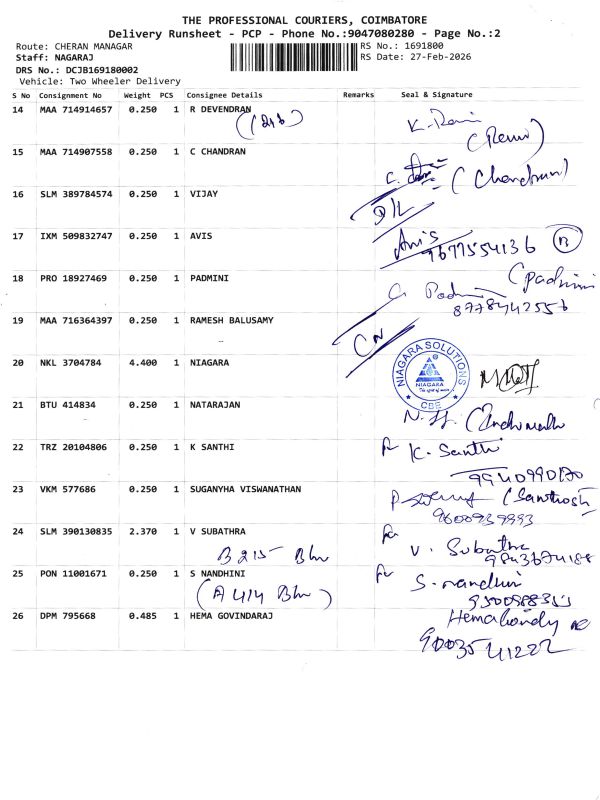 THE PROFESSIONAL COURIERS, COIMBATORE
Delivery Runsheet - PCP - Phone No.:9047080280 - Page No.:2
Route: CHERAN MANAGAR
RS No.: 1691800
Staff: NAGARAJ
RS Date: 27-Feb-2026
DRS No.: DCJB169180002
Vehicle: Two Wheeler Delivery
S No Consignment No Weight PCS Consignee Details Remarks Seal & Signature
14 MAA 714914657 0.250 1 R DEVENDRAN
K. Ravi
15 MAA 714907558 0.250 1 C CHANDRAN
C.
(Chandran)
16 SLM 389784574 0.250 1 VIJAY
D/L
17 IXM 509832747 0.250 1 AVIS
Avis
9677554136 B
18 PRO 18927469 0.250 1 PADMINI
(padmini
8778442556
19 MAA 716364397 0.250 1 RAMESH BALUSAMY
CN
20 NKL 3704784 4.400 1 NIAGARA
NIAGARA SOLUTIONS
NIAGARA
CBE
21 BTU 414834 0.250 1 NATARAJAN
22 TRZ 20104806 0.250 1 K SANTHI
for K. Santhi
9940990170
23 VKM 577686 0.250 1 SUGANYHA VISWANATHAN
(Santhosh)
9600939993
24 SLM 390130835 2.370 1 V SUBATHRA
B 215 Bhr
for V. Subathra
9843674188
25 PON 11001671 0.250 1 S NANDHINI
(A 414 Bhr)
for S. nandhini
26 DPM 795668 0.485 1 HEMA GOVINDARAJ
9003541222